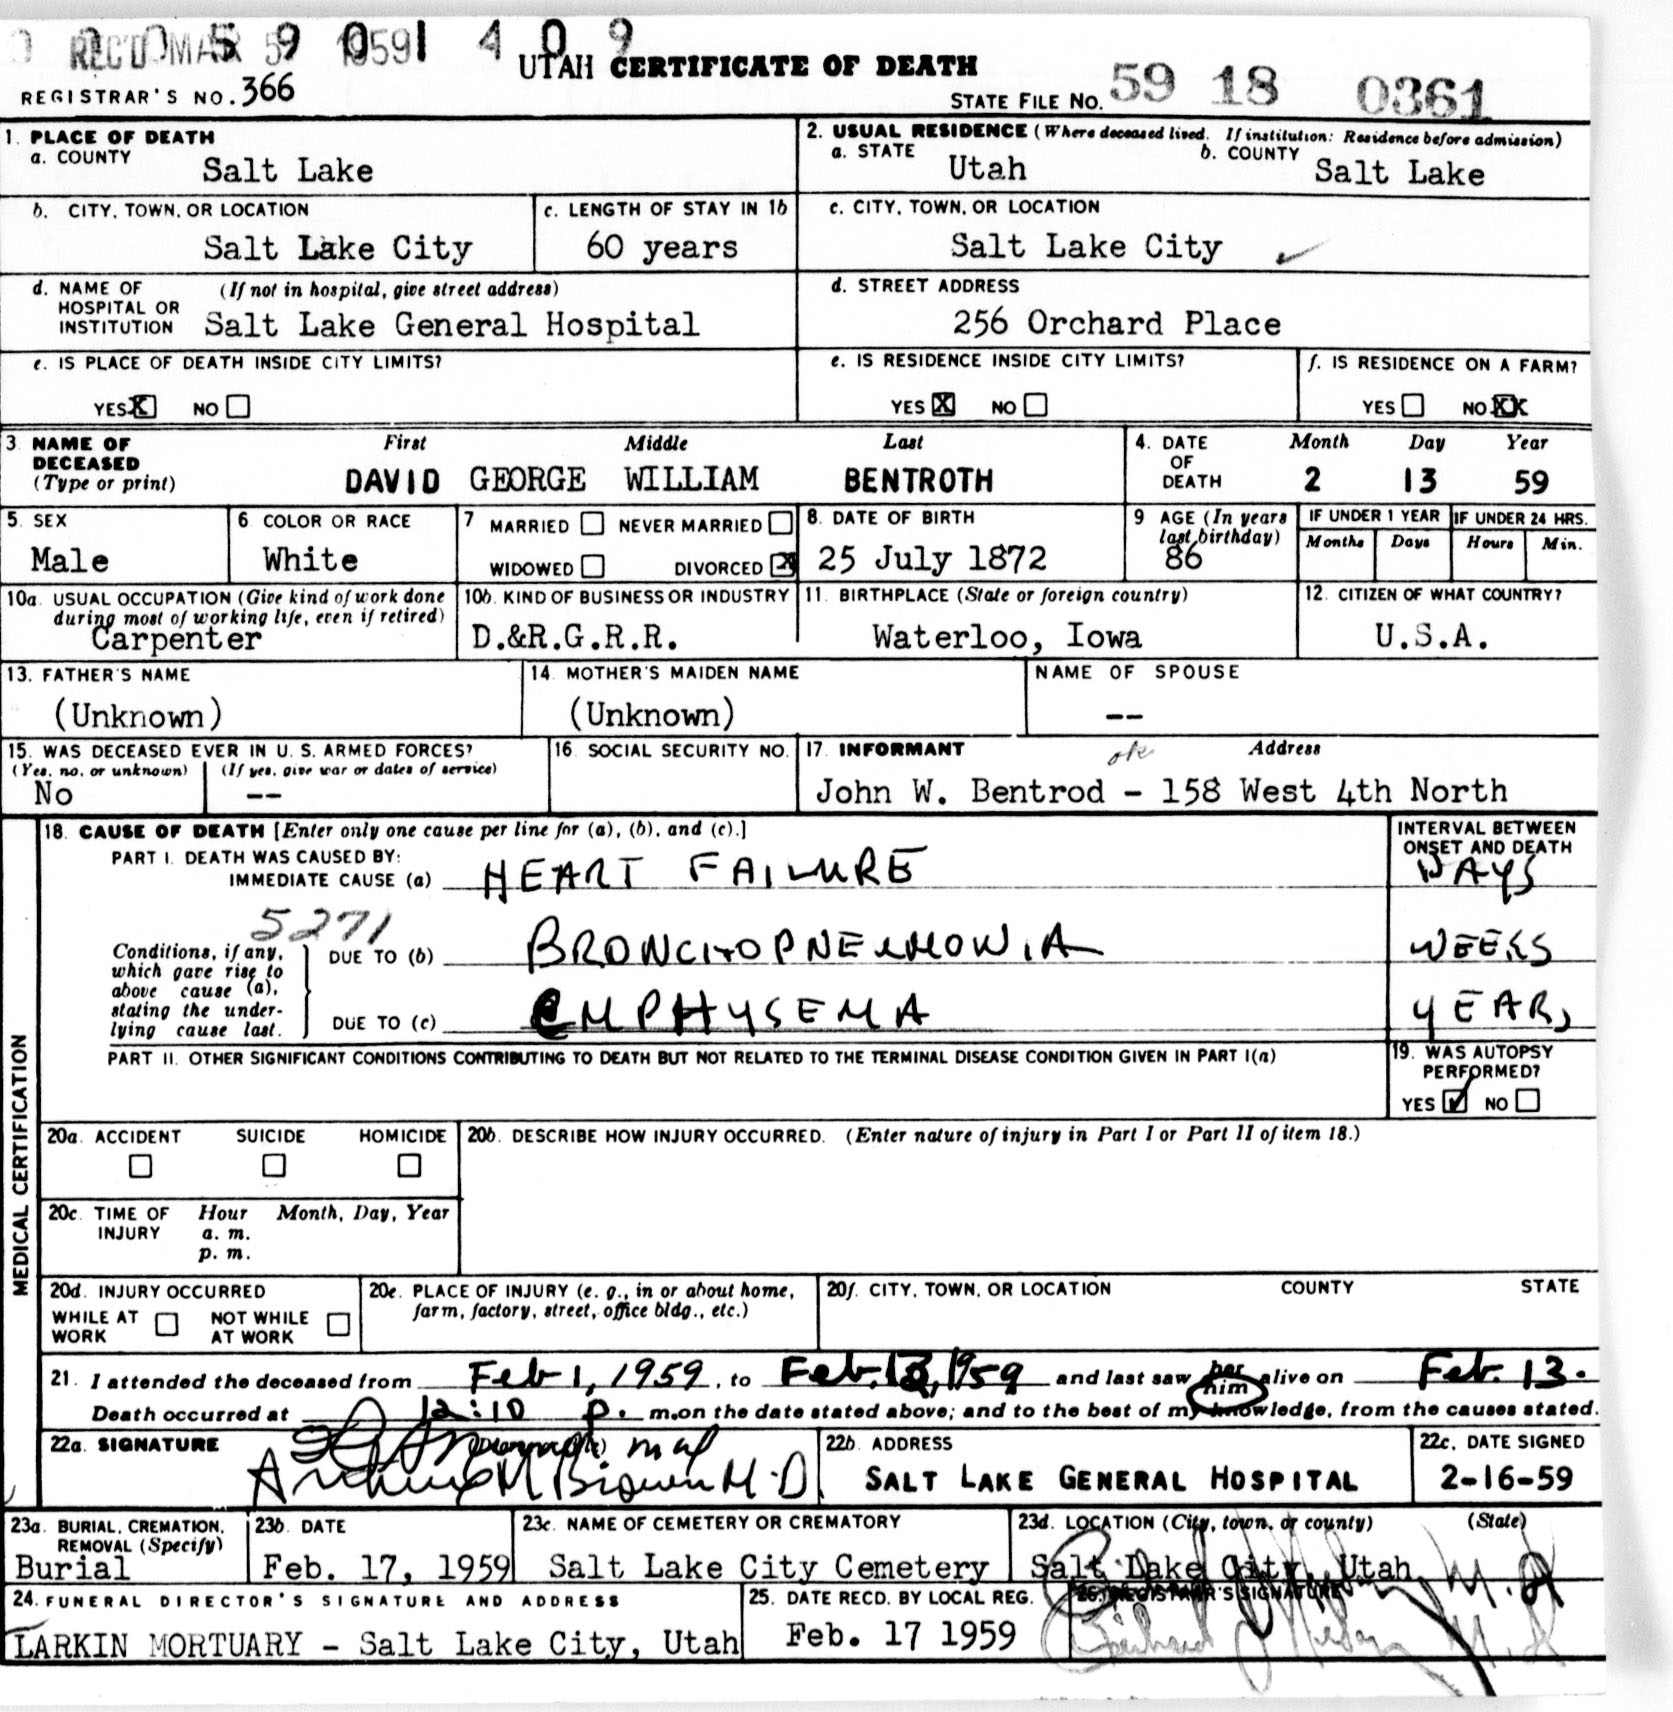 REC'D MAR 5 1959 1 4 0 9
UTAH CERTIFICATE OF DEATH
REGISTRAR'S NO. 366
STATE FILE NO. 59 18 0361
1. PLACE OF DEATH
a. COUNTY Salt Lake
2. USUAL RESIDENCE (Where deceased lived. If institution: Residence before admission)
a. STATE Utah b. COUNTY Salt Lake
b. CITY, TOWN, OR LOCATION Salt Lake City
c. LENGTH OF STAY IN 1b 60 years
c. CITY, TOWN, OR LOCATION Salt Lake City
d. NAME OF HOSPITAL OR INSTITUTION (If not in hospital, give street address) Salt Lake General Hospital
d. STREET ADDRESS 256 Orchard Place
e. IS PLACE OF DEATH INSIDE CITY LIMITS?
YES X NO
e. IS RESIDENCE INSIDE CITY LIMITS?
YES X NO
f. IS RESIDENCE ON A FARM?
YES NO XX
3. NAME OF DECEASED (Type or print)
First Middle Last
DAVID GEORGE WILLIAM BENTROTH
4. DATE OF DEATH Month Day Year
2 13 59
5. SEX Male
6 COLOR OR RACE White
7 MARRIED NEVER MARRIED
WIDOWED DIVORCED X
8. DATE OF BIRTH 25 July 1872
9 AGE (In years last birthday) 86
IF UNDER 1 YEAR Months Days
IF UNDER 24 HRS. Hours Min.
10a. USUAL OCCUPATION (Give kind of work done during most of working life, even if retired) Carpenter
10b. KIND OF BUSINESS OR INDUSTRY D.&R.G.R.R.
11. BIRTHPLACE (State or foreign country) Waterloo, Iowa
12. CITIZEN OF WHAT COUNTRY? U.S.A.
13. FATHER'S NAME (Unknown)
14. MOTHER'S MAIDEN NAME (Unknown)
NAME OF SPOUSE --
15. WAS DECEASED EVER IN U. S. ARMED FORCES?
(Yes, no, or unknown) (If yes, give war or dates of service)
No --
16. SOCIAL SECURITY NO.
17. INFORMANT ok Address
John W. Bentrod - 158 West 4th North
MEDICAL CERTIFICATION
18. CAUSE OF DEATH [Enter only one cause per line for (a), (b), and (c).]
INTERVAL BETWEEN ONSET AND DEATH
PART I. DEATH WAS CAUSED BY:
IMMEDIATE CAUSE (a) HEART FAILURE DAYS
5271
Conditions, if any, which gave rise to above cause (a), stating the underlying cause last.
DUE TO (b) BRONCHOPNEUMONIA WEEKS
DUE TO (c) EMPHYSEMA YEARS
PART II. OTHER SIGNIFICANT CONDITIONS CONTRIBUTING TO DEATH BUT NOT RELATED TO THE TERMINAL DISEASE CONDITION GIVEN IN PART I(a)
19. WAS AUTOPSY PERFORMED?
YES ✓ NO
20a. ACCIDENT SUICIDE HOMICIDE
20b. DESCRIBE HOW INJURY OCCURRED. (Enter nature of injury in Part I or Part II of item 18.)
20c. TIME OF INJURY Hour Month, Day, Year
a. m.
p. m.
20d. INJURY OCCURRED
WHILE AT WORK NOT WHILE AT WORK
20e. PLACE OF INJURY (e. g., in or about home, farm, factory, street, office bldg., etc.)
20f. CITY, TOWN, OR LOCATION COUNTY STATE
21. I attended the deceased from Feb 1, 1959, to Feb. 13, 1959 and last saw her him alive on Feb. 13.
Death occurred at 12:10 p. m. on the date stated above; and to the best of my knowledge, from the causes stated.
22a. SIGNATURE
Arthur M Brown M.D.
22b. ADDRESS SALT LAKE GENERAL HOSPITAL
22c. DATE SIGNED 2-16-59
23a. BURIAL, CREMATION, REMOVAL (Specify) Burial
23b. DATE Feb. 17, 1959
23c. NAME OF CEMETERY OR CREMATORY Salt Lake City Cemetery
23d. LOCATION (City, town, or county) (State) Salt Lake City, Utah
24. FUNERAL DIRECTOR'S SIGNATURE AND ADDRESS
LARKIN MORTUARY - Salt Lake City, Utah
25. DATE RECD. BY LOCAL REG. Feb. 17 1959
26. REGISTRAR'S SIGNATURE